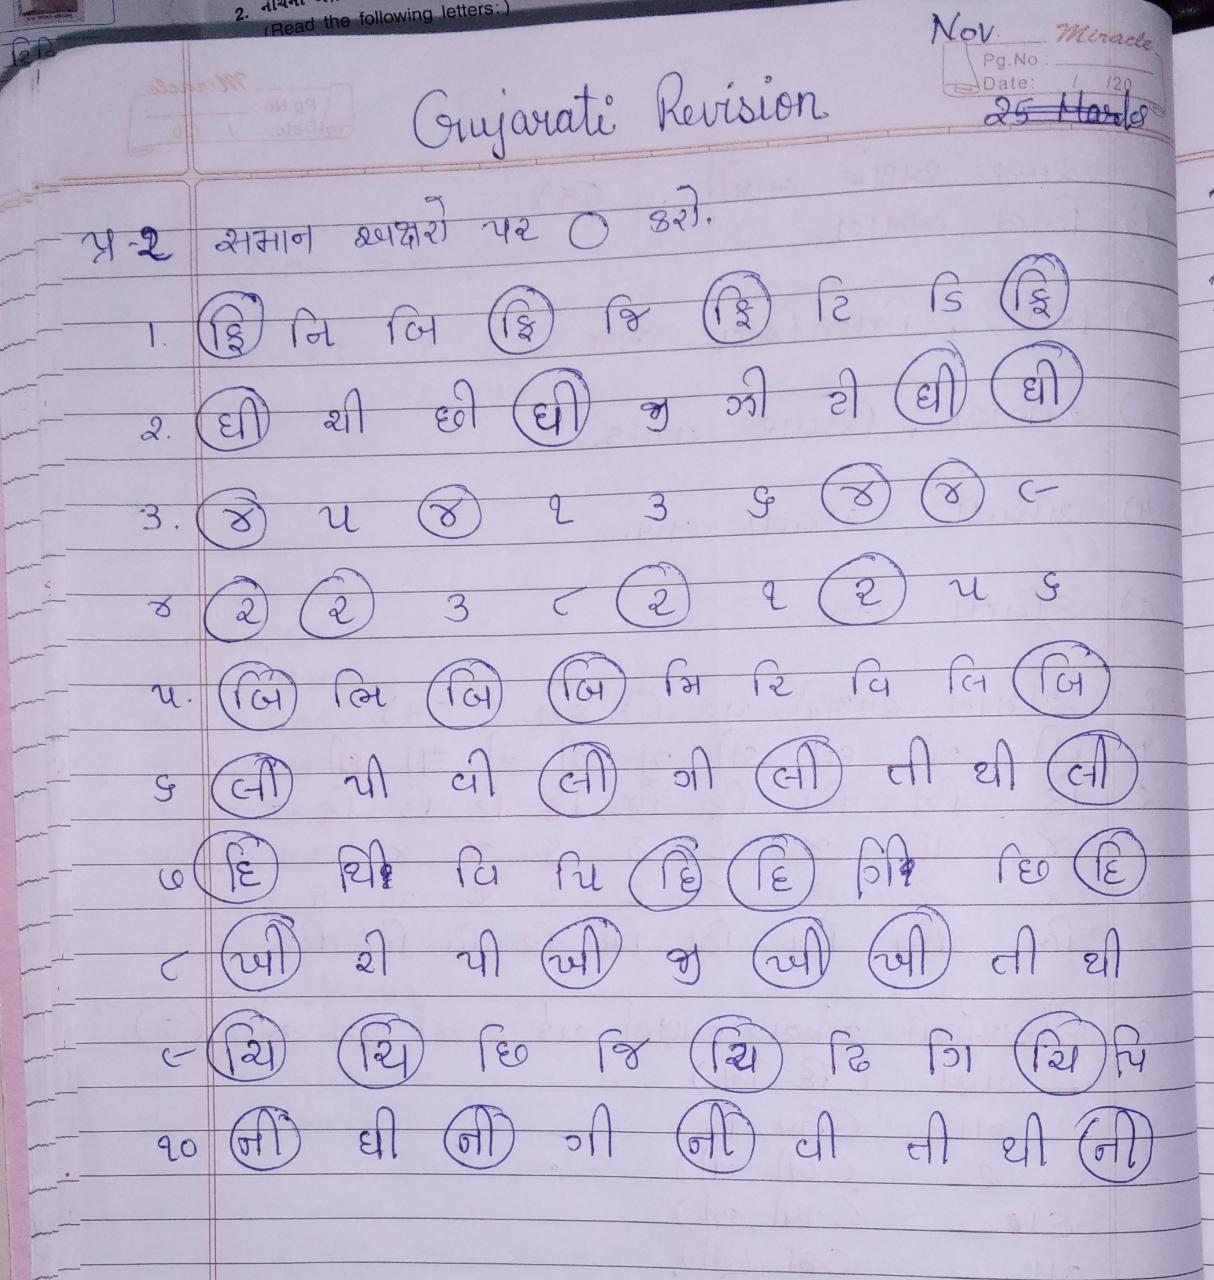 (Read the following letters:)
Nov.
Miracle
Pg.No :
Date: / /20
25 Marks
Gujarati Revision
પ્ર-૨ સમાન અક્ષરો પર ○ કરો.
1. ફિ નિ બિ ફિ જિ ફિ ટિ ડિ ફિ
૨. ઘી શી છી ઘી જી ઝી ટી ઘી ઘી
૩. ૪ ૫ ૪ ૧ ૩ ૬ ૪ ૪ ૯
૪ ૨ ૨ ૩ ૮ ૨ ૧ ૨ ૫ ૬
૫. બિ ભિ બિ બિ મિ રિ વિ લિ બિ
૬ લી પી વી લી ગી લી તી થી લી
૭ હિ થિ વિ પિ હિ હિ ગિ છિ હિ
૮ ખી રી પી ખી જી ખી ખી તી થી
૯ ચિ ચિ છિ જિ ચિ ઢિ ગિ ચિ પિ
૧૦ ની ઘી ની ગી ની વી તી થી ની